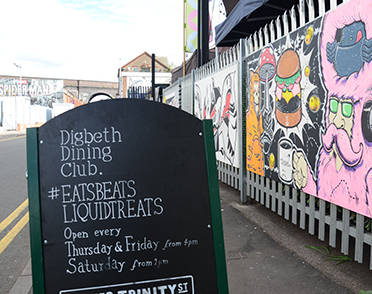 SPIDER-MAN
Digbeth
Dining
Club.
#EATSBEATS
LIQUIDTREATS
Open every
Thursday & Friday from 5pm
Saturday from 1pm
TRINITY ST